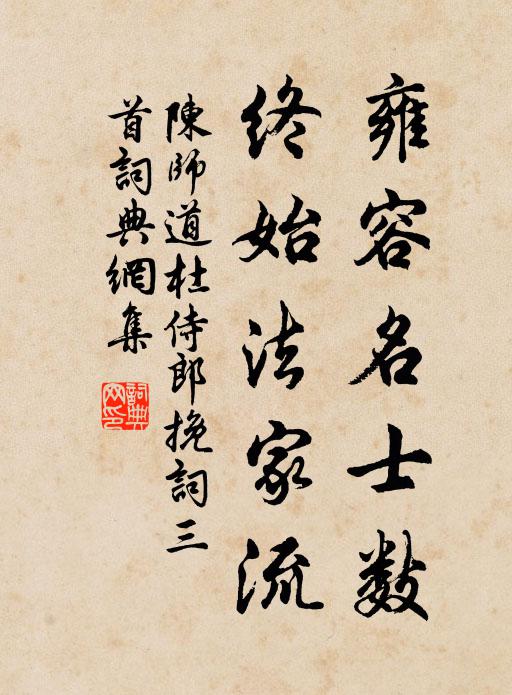 雍容名士數
終始法家流
陳師道杜侍郎挽詞三
首詞典網集
詞典
网印